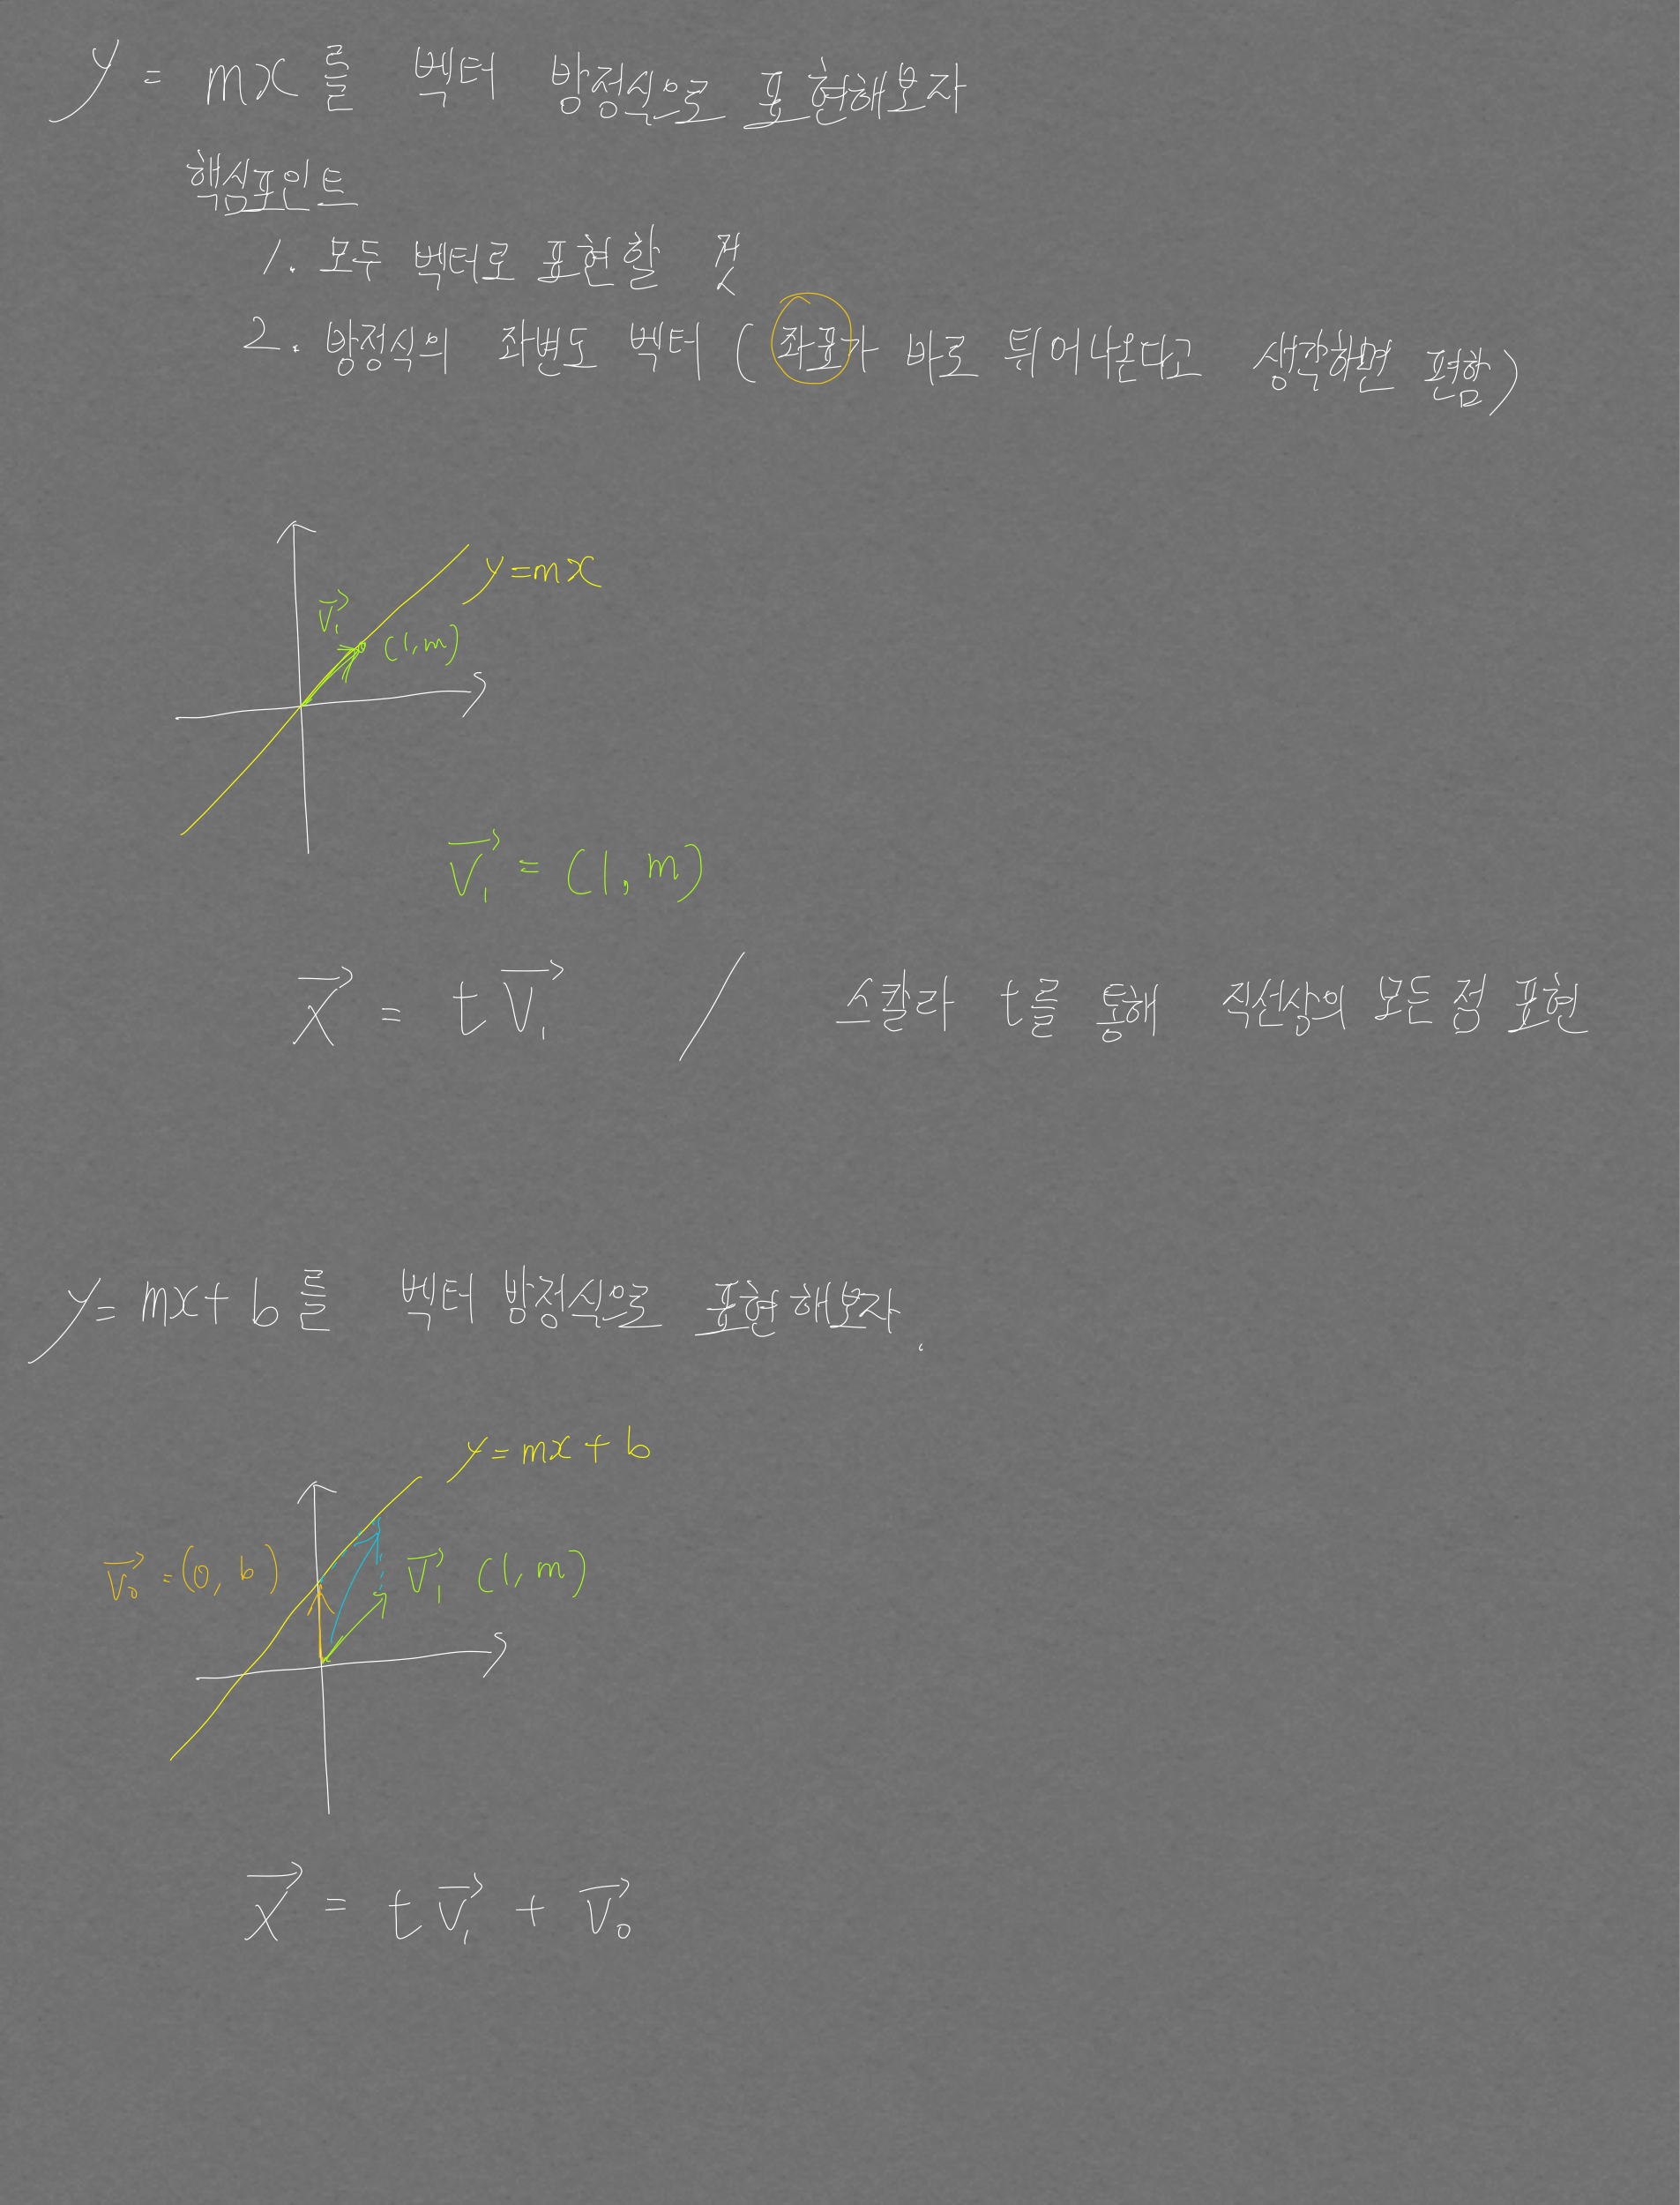 y = mx를 벡터 방정식으로 표현해보자
핵심포인트
1. 모두 벡터로 표현할 것
2. 방정식의 좌변도 벡터 (좌표가 바로 튀어나온다고 생각하면 편함)
y=mx
v₁⃗
(1,m)
v₁⃗ = (1, m)
x⃗ = t v₁⃗ / 스칼라 t를 통해 직선상의 모든 점 표현
y= mx+ b를 벡터 방정식으로 표현해보자.
y=mx+b
v₀⃗ =(0, b)
v₁⃗ (1, m)
x⃗ = t v₁⃗ + v₀⃗